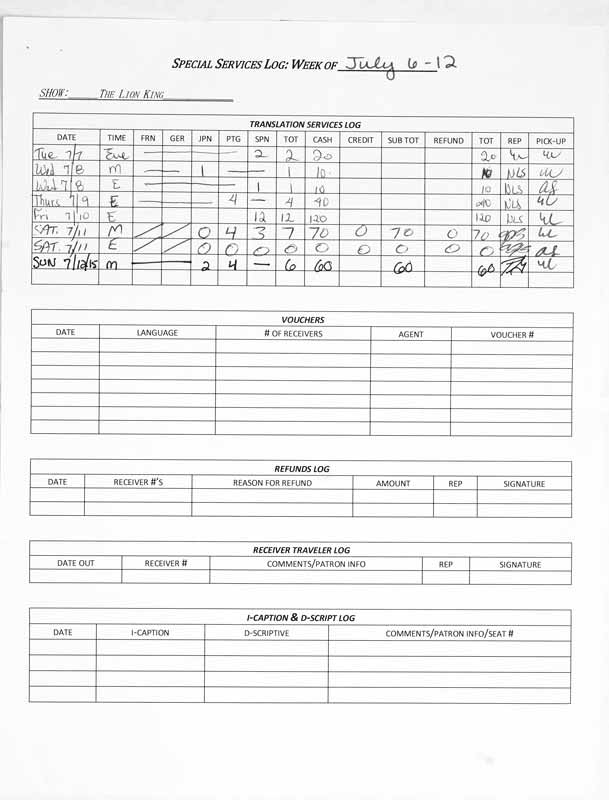 SPECIAL SERVICES LOG: WEEK OF July 6-12
SHOW: THE LION KING
TRANSLATION SERVICES LOG
DATE TIME FRN GER JPN PTG SPN TOT CASH CREDIT SUB TOT REFUND TOT REP PICK-UP
Tue 7/7 Eve — 2 2 20 20
Wed 7/8 M — 1 — 1 10 10 NLS
Wed 7/8 E — 1 1 10 10 NLS
Thurs 7/9 E — 4 — 4 40 40 NLS
Fri 7/10 E 12 12 120 120 NLS
SAT. 7/11 M 0 4 3 7 70 0 70 0 70
SAT. 7/11 E 0 0 0 0 0 0 0 0 0
SUN 7/12/15 M — 2 4 — 6 60 60 60
VOUCHERS
DATE LANGUAGE # OF RECEIVERS AGENT VOUCHER #
REFUNDS LOG
DATE RECEIVER #'S REASON FOR REFUND AMOUNT REP SIGNATURE
RECEIVER TRAVELER LOG
DATE OUT RECEIVER # COMMENTS/PATRON INFO REP SIGNATURE
I-CAPTION & D-SCRIPT LOG
DATE I-CAPTION D-SCRIPTIVE COMMENTS/PATRON INFO/SEAT #